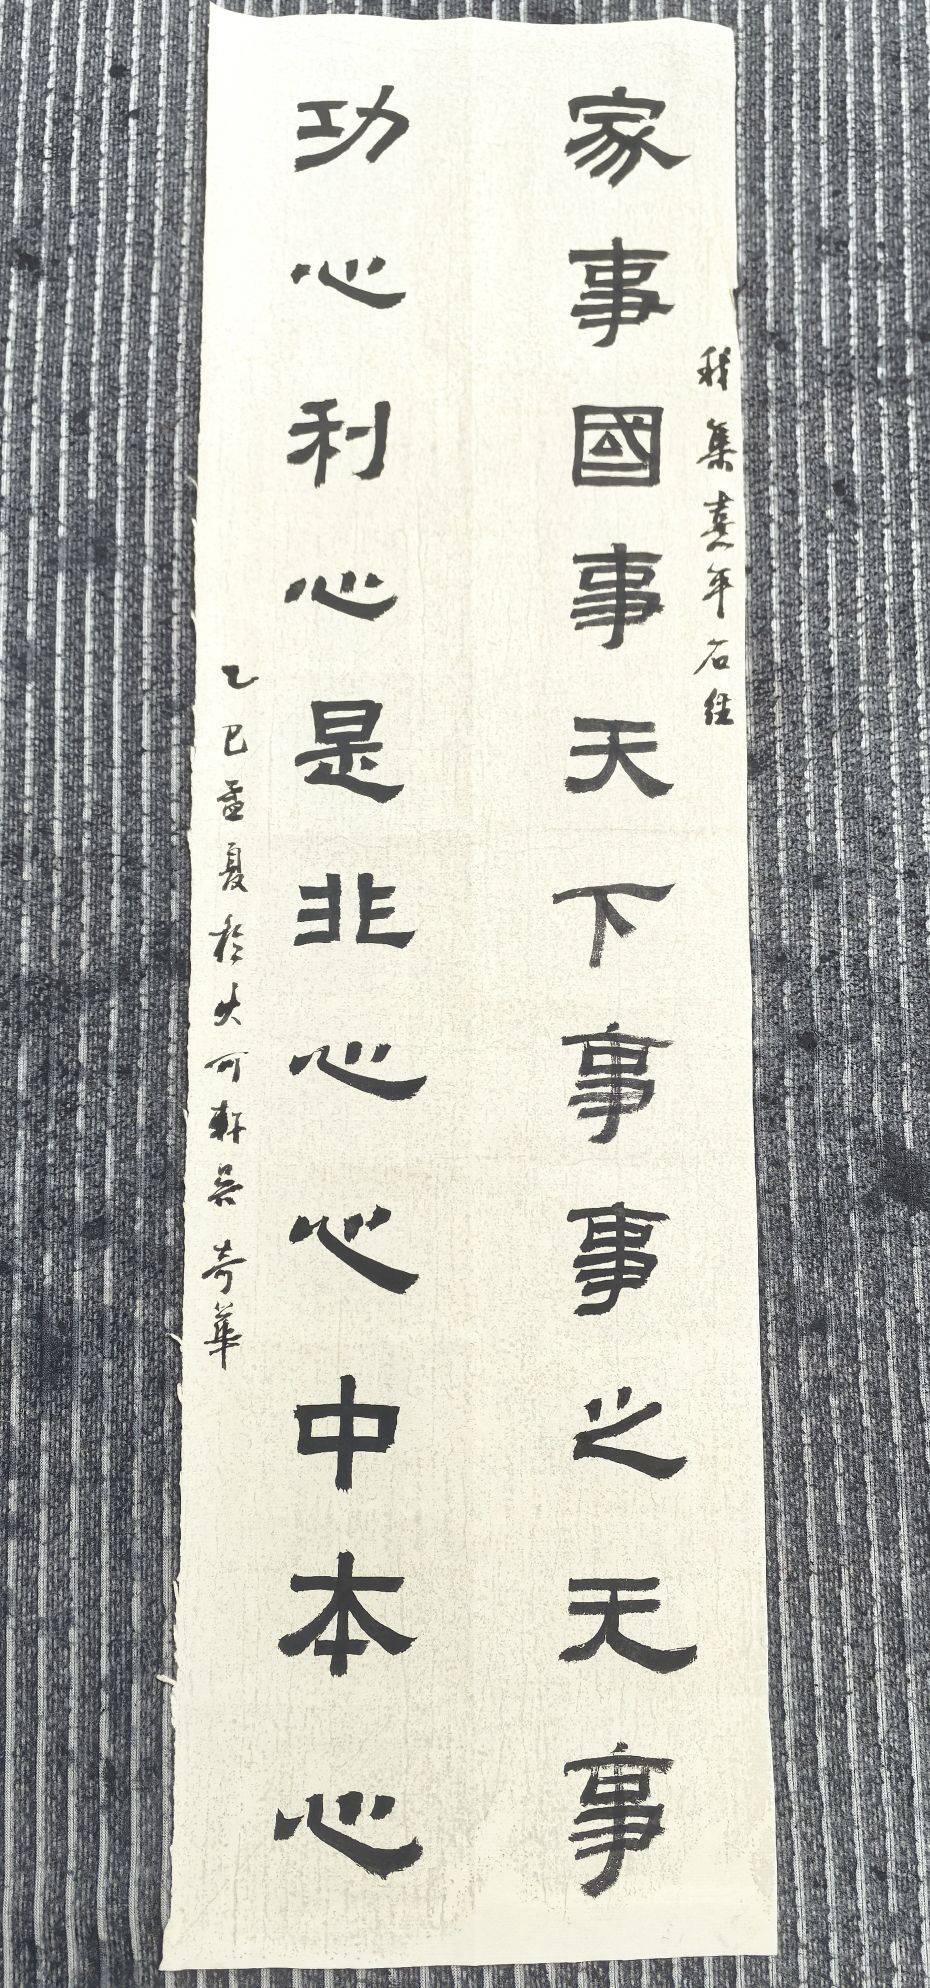 集熹平石经
家事國事天下事事之天事
功心利心是非心心中本心
乙巳孟夏於大可軒吴奇華